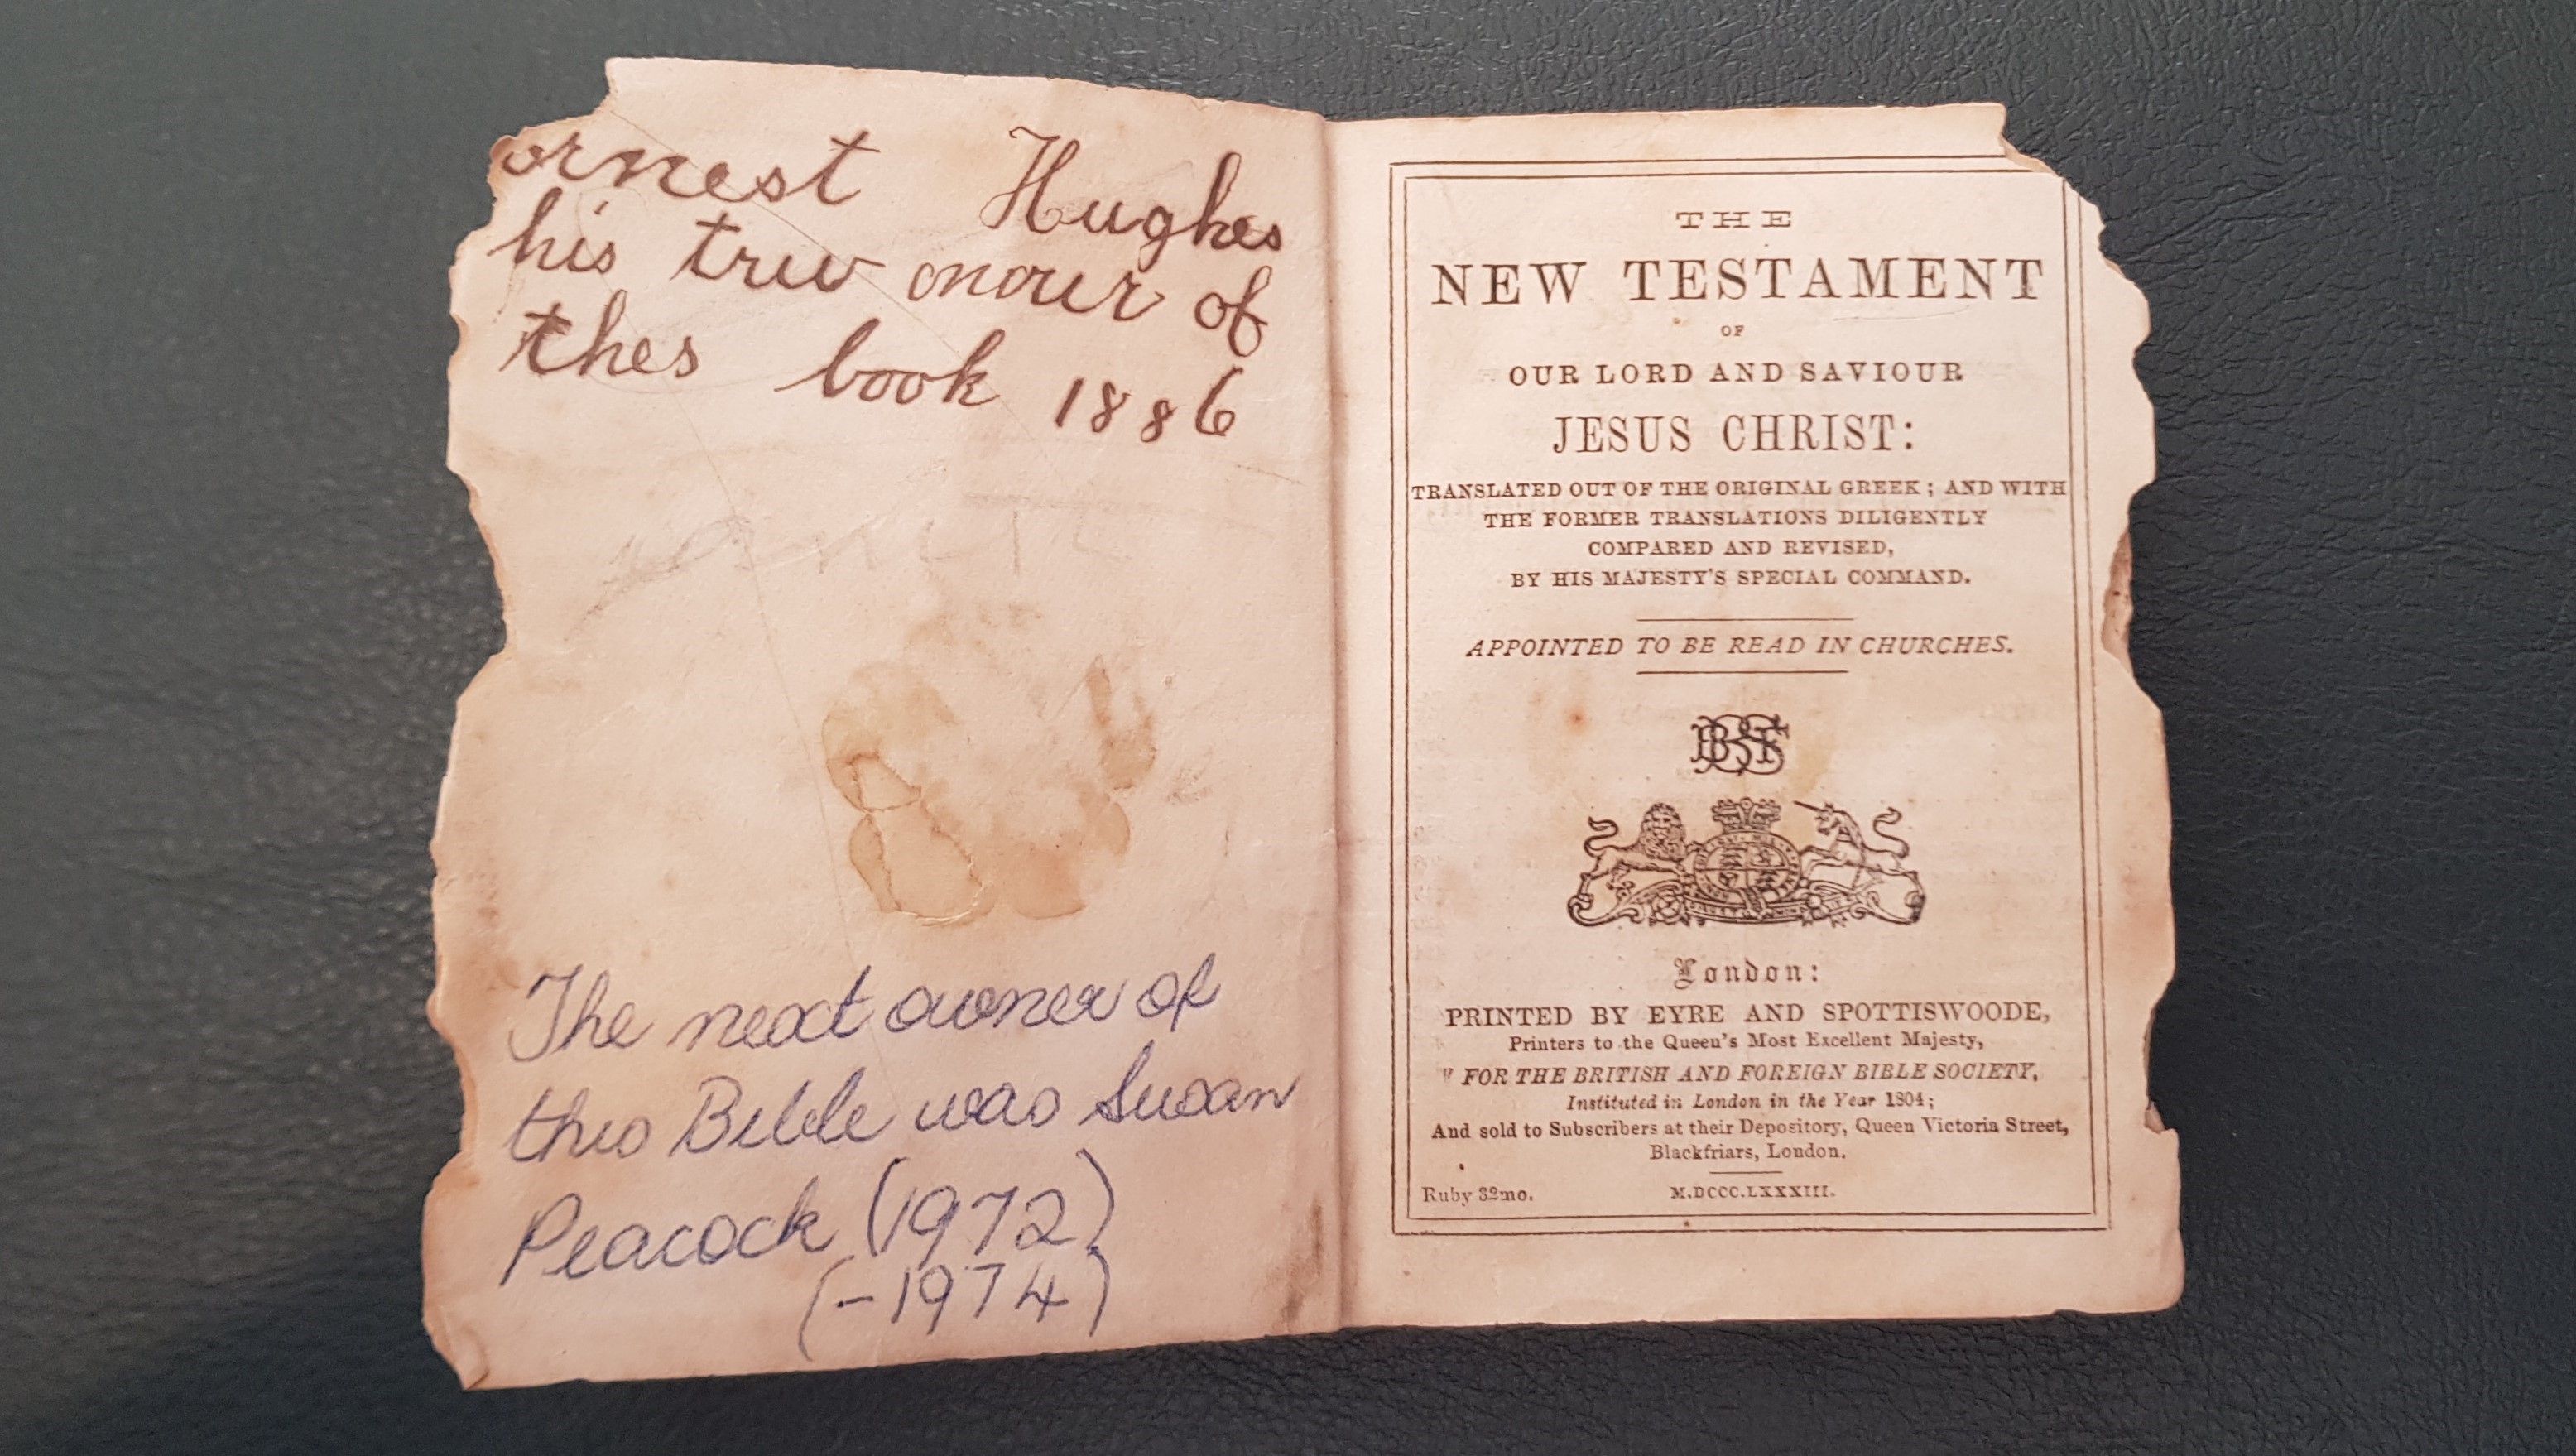 ornest Hughes
his truw onour of
thes book 1886
The next owner of
this Bible was Susan
Peacock (1972)
(-1974)
THE
NEW TESTAMENT
OF
OUR LORD AND SAVIOUR
JESUS CHRIST:
TRANSLATED OUT OF THE ORIGINAL GREEK; AND WITH
THE FORMER TRANSLATIONS DILIGENTLY
COMPARED AND REVISED,
BY HIS MAJESTY'S SPECIAL COMMAND.
APPOINTED TO BE READ IN CHURCHES.
London:
PRINTED BY EYRE AND SPOTTISWOODE,
Printers to the Queen's Most Excellent Majesty,
FOR THE BRITISH AND FOREIGN BIBLE SOCIETY,
Instituted in London in the Year 1804;
And sold to Subscribers at their Depository, Queen Victoria Street,
Blackfriars, London.
Ruby 32mo. M.DCCC.LXXXIII.